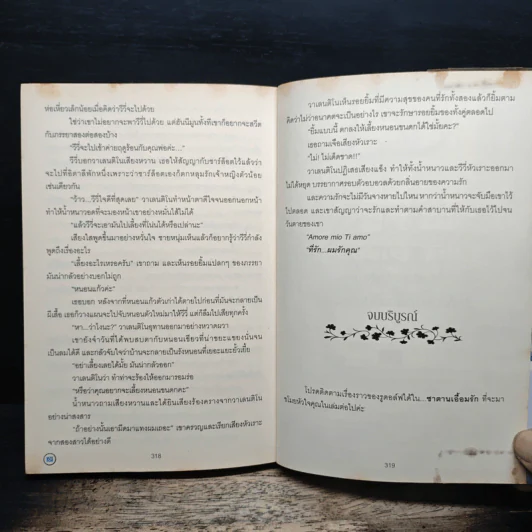 ห่อเหี่ยวเล็กน้อยเมื่อคิดว่าวีวี่จะไปด้วย
ใช่ว่าเขาไม่อยากจะพาวีวี่ไปด้วย แต่ฮันนีมูนทั้งทีเขาก็อยากจะสวีต
กับภรรยาสองต่อสองบ้าง
"วีวี่จะไปเข้าค่ายฤดูร้อนกับคุณพ่อค่ะ..."
วีวี่บอกวาเลนติโนเสียงหวาน เธอให้สัญญากับชาร์ล็อตไว้แล้วว่า
จะไปที่อิตาลีพักหนึ่งเพราะว่าชาร์ล็อตเองก็ตกหลุมรักเจ้าหญิงตัวน้อย
เช่นเดียวกัน
"ว้าว...วีวี่ใจดีที่สุดเลย" วาเลนติโนทำหน้าตาดีใจจนออกนอกหน้า
ทำให้น้ำหนาวอดที่จะมองหน้าเขาอย่างหมั่นไส้ไม่ได้
"แล้ววีวี่จะเอามันไปเลี้ยงที่โน่นได้หรือเปล่านะ"
เสียงใสพูดขึ้นมาอย่างหวั่นใจ ชายหนุ่มเห็นแล้วก็อยากรู้ว่าวีวี่กำลัง
พูดถึงเรื่องอะไร
"เลี้ยงอะไรเหรอครับ" เขาถาม และเห็นรอยยิ้มแปลกๆ ของภรรยา
มันน่ากลัวอย่างบอกไม่ถูก
"หนอนแก้วค่ะ"
เธอบอก หลังจากที่หนอนแก้วตัวเก่าได้ตายไปก่อนที่มันจะกลายเป็น
ผีเสื้อ เธอก็วางแผนจะไปจับหนอนตัวใหม่มาให้วีวี่ แต่ก็ลืมไปเสียทุกครั้ง
"หา...ว่าไงนะ?" วาเลนติโนอุทานออกมาอย่างหวาดผวา
เขายังจำวันที่ได้พบสบตากับหนอนเขียวที่น่าขยะแขยงนั่นจน
เป็นลมได้ดี และกลัวจับใจว่าบ้านจะกลายเป็นรังหนอนที่เยอะแยะยั้วเยี้ย
"อย่าเลี้ยงเลยได้มั้ย มันน่ากลัวออก"
วาเลนติโนว่า ทำท่าจะร้องไห้ออกมารอมร่อ
"หรือว่าคุณอยากจะเลี้ยงหนอนชนดกคะ"
น้ำหนาวถามเสียงหวานและได้ยินเสียงร้องครางจากวาเลนติโน
อย่างน่าสงสาร
"ถ้าอย่างนั้นเอามีดมาแทงผมเถอะ" เขาครวญและเรียกเสียงหัวเราะ
จากสองสาวได้อย่างดี
318
วาเลนติโนเห็นรอยยิ้มที่มีความสุขของคนที่รักทั้งสองแล้วก็ยิ้มตาม
คิดว่าไม่ว่าอนาคตจะเป็นอย่างไร เขาจะรักษารอยยิ้มของทั้งคู่ตลอดไป
"ยิ้มแบบนี้ ตกลงให้เลี้ยงหนอนชนดกได้ใช่มั้ยคะ?"
เธอถามเจือเสียงหัวเราะ
"ไม่! ไม่เด็ดขาด!!"
วาเลนติโนปฏิเสธเสียงแข็ง ทำให้ทั้งน้ำหนาวและวีวี่หัวเราะออกมา
ไม่ได้หยุด บรรยากาศรอบตัวอบอวลด้วยกลิ่นอายของความรัก
และความรักจะไม่มีวันจางหายไปไหน หากว่าน้ำหนาวจะจับมือเขาไว้
ไปตลอด และเขาสัญญาว่าจะรักและทำตามคำสาบานที่ให้กับเธอไว้ไปจน
วันตายของเขา
"Amore mio Ti amo"
"ที่รัก...ผมรักคุณ"
จบบริบูรณ์
โปรดติดตามเรื่องราวของรูดอล์ฟได้ใน...ซาตานเอื้อมรัก ที่จะมา
ขโมยหัวใจคุณในเล่มต่อไปค่ะ
319